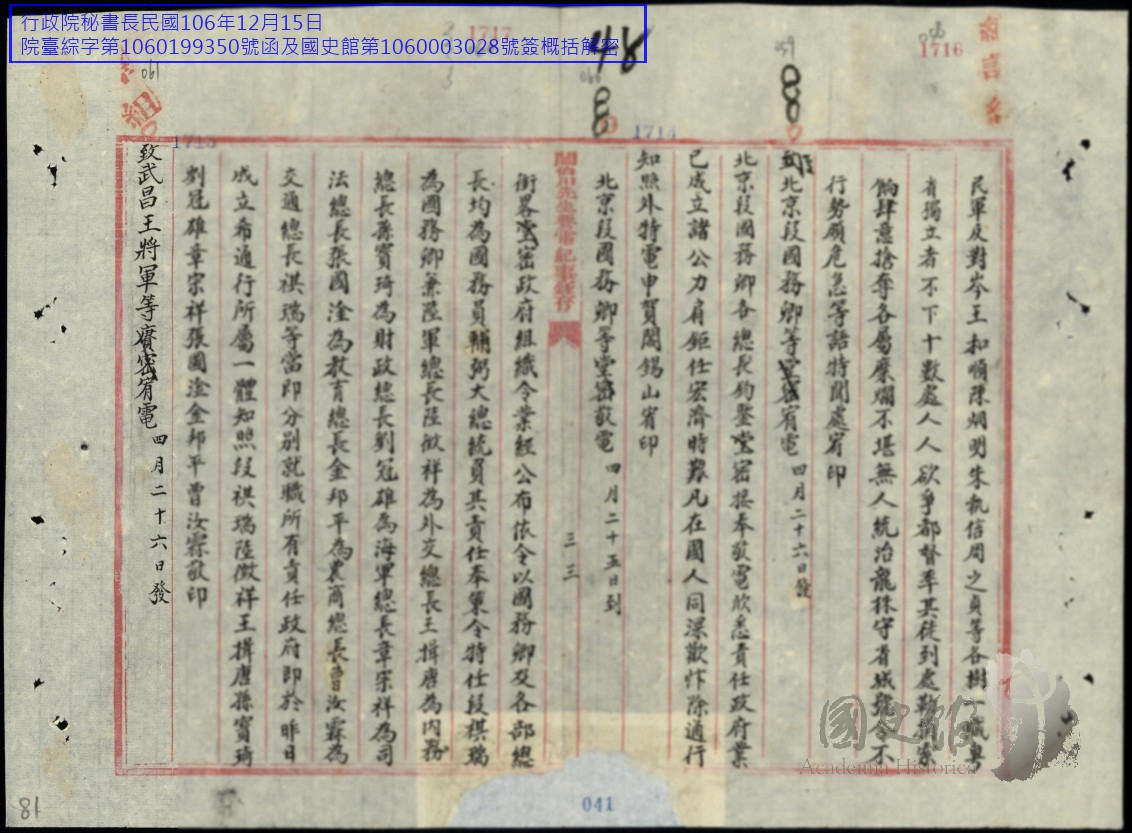 行政院秘書長民國106年12月15日
院臺綜字第1060199350號函及國史館第1060003028號簽概括解密
1716
1717
1714
1715
059
061
48
8
8
民軍反對岑王扣順陳炯明朱執信周之貞等各樹一幟粵
省獨立者不下十數處人人欲爭都督率其徒到處勒捐索
餉肆意搶奪各屬糜爛不堪無人統治龍株守省城號令不
行勢頗危急等語特聞處宥印
致北京段國務卿等堂密宥電 四月二十六日發
北京段國務卿各總長鈞鑒堂密接奉敬電欣悉責任政府業
已成立諸公力肩鉅任宏濟時艱凡在國人同深歡忭除通行
知照外特電申賀閻錫山宥印
北京段國務卿等堂密敬電 四月二十五日到
閻伯川先生要電紀事錄存
三三
銜畧堂密政府組織令業經公布依令以國務卿及各部總
長均為國務員輔弼大總統負其責任奉策令特任段祺瑞
為國務卿兼陸軍總長陸徵祥為外交總長王揖唐為內務
總長孫寶琦為財政總長劉冠雄為海軍總長章宗祥為司
法總長張國淦為教育總長金邦平為農商總長曹汝霖為
交通總長祺瑞等當即分別就職所有責任政府即於昨日
成立希通行所屬一體知照段祺瑞陸徵祥王揖唐孫寶琦
劉冠雄章宗祥張國淦金邦平曹汝霖敬印
致武昌王將軍等賡密宥電 四月二十六日發
國史館
Academia Historica
041
81